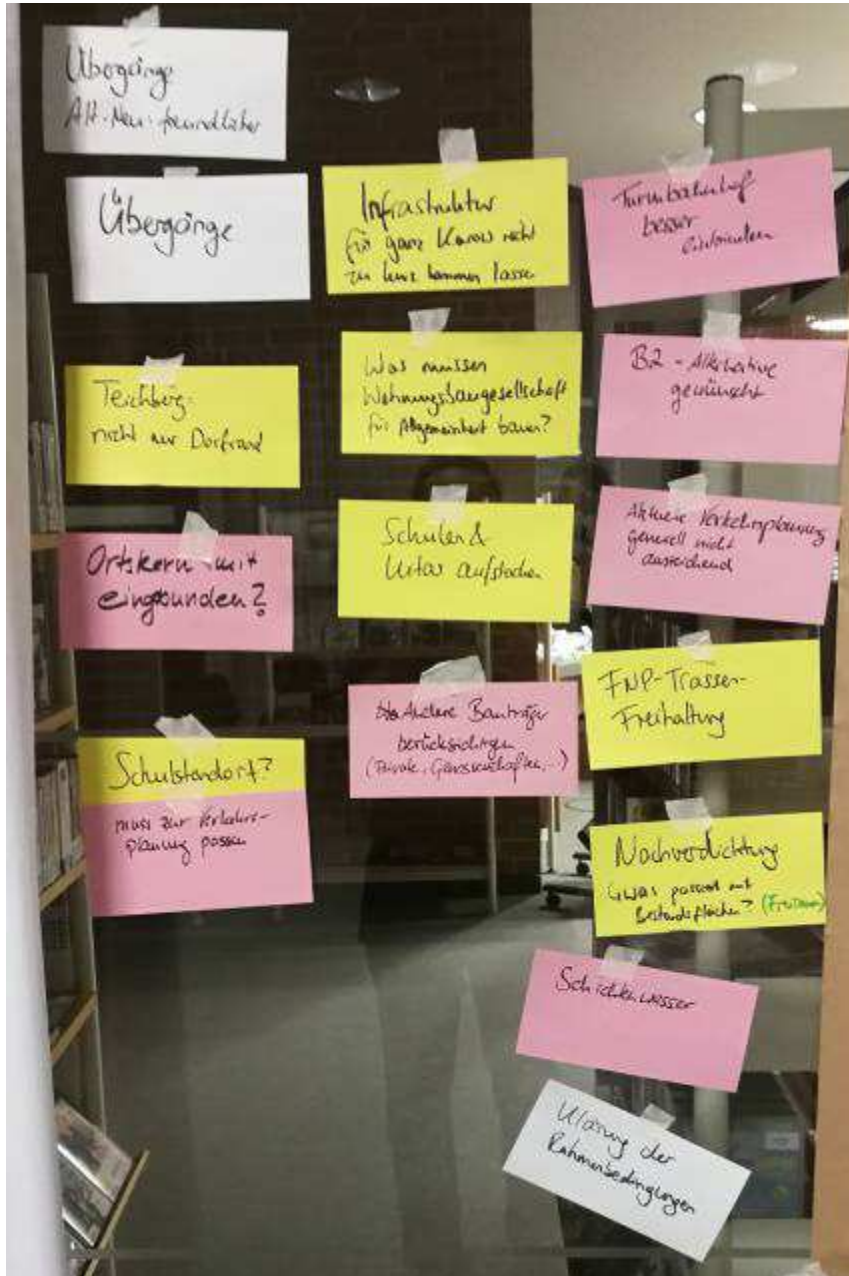 Übergänge
Alt-Neu-freundlicher
Übergänge
Teichberg
nicht nur Dorfrand
Ortskern mit
eingebunden?
Schulstandort?
muss zur Verkehrs-
planung passen
Infrastruktur
für ganz Karow nicht
zu kurz kommen lassen
Was müssen
Wohnungsbaugesellschaft
für Allgemeinheit bauen?
Schulen &
Kitas aufstocken
Andere Bauträger
berücksichtigen
(Private, Genossenschaften, ..)
Turmbahnhof
besser
einbinden
B2 - Alternative
gewünscht
Aktuelle Verkehrsplanung
generell nicht
ausreichend
FNP-Trassen-
Freihaltung
Nachverdichtung
↳ was passiert mit
Bestandsflächen? (Freiraum)
Schichtenwasser
Klärung der
Rahmenbedingungen